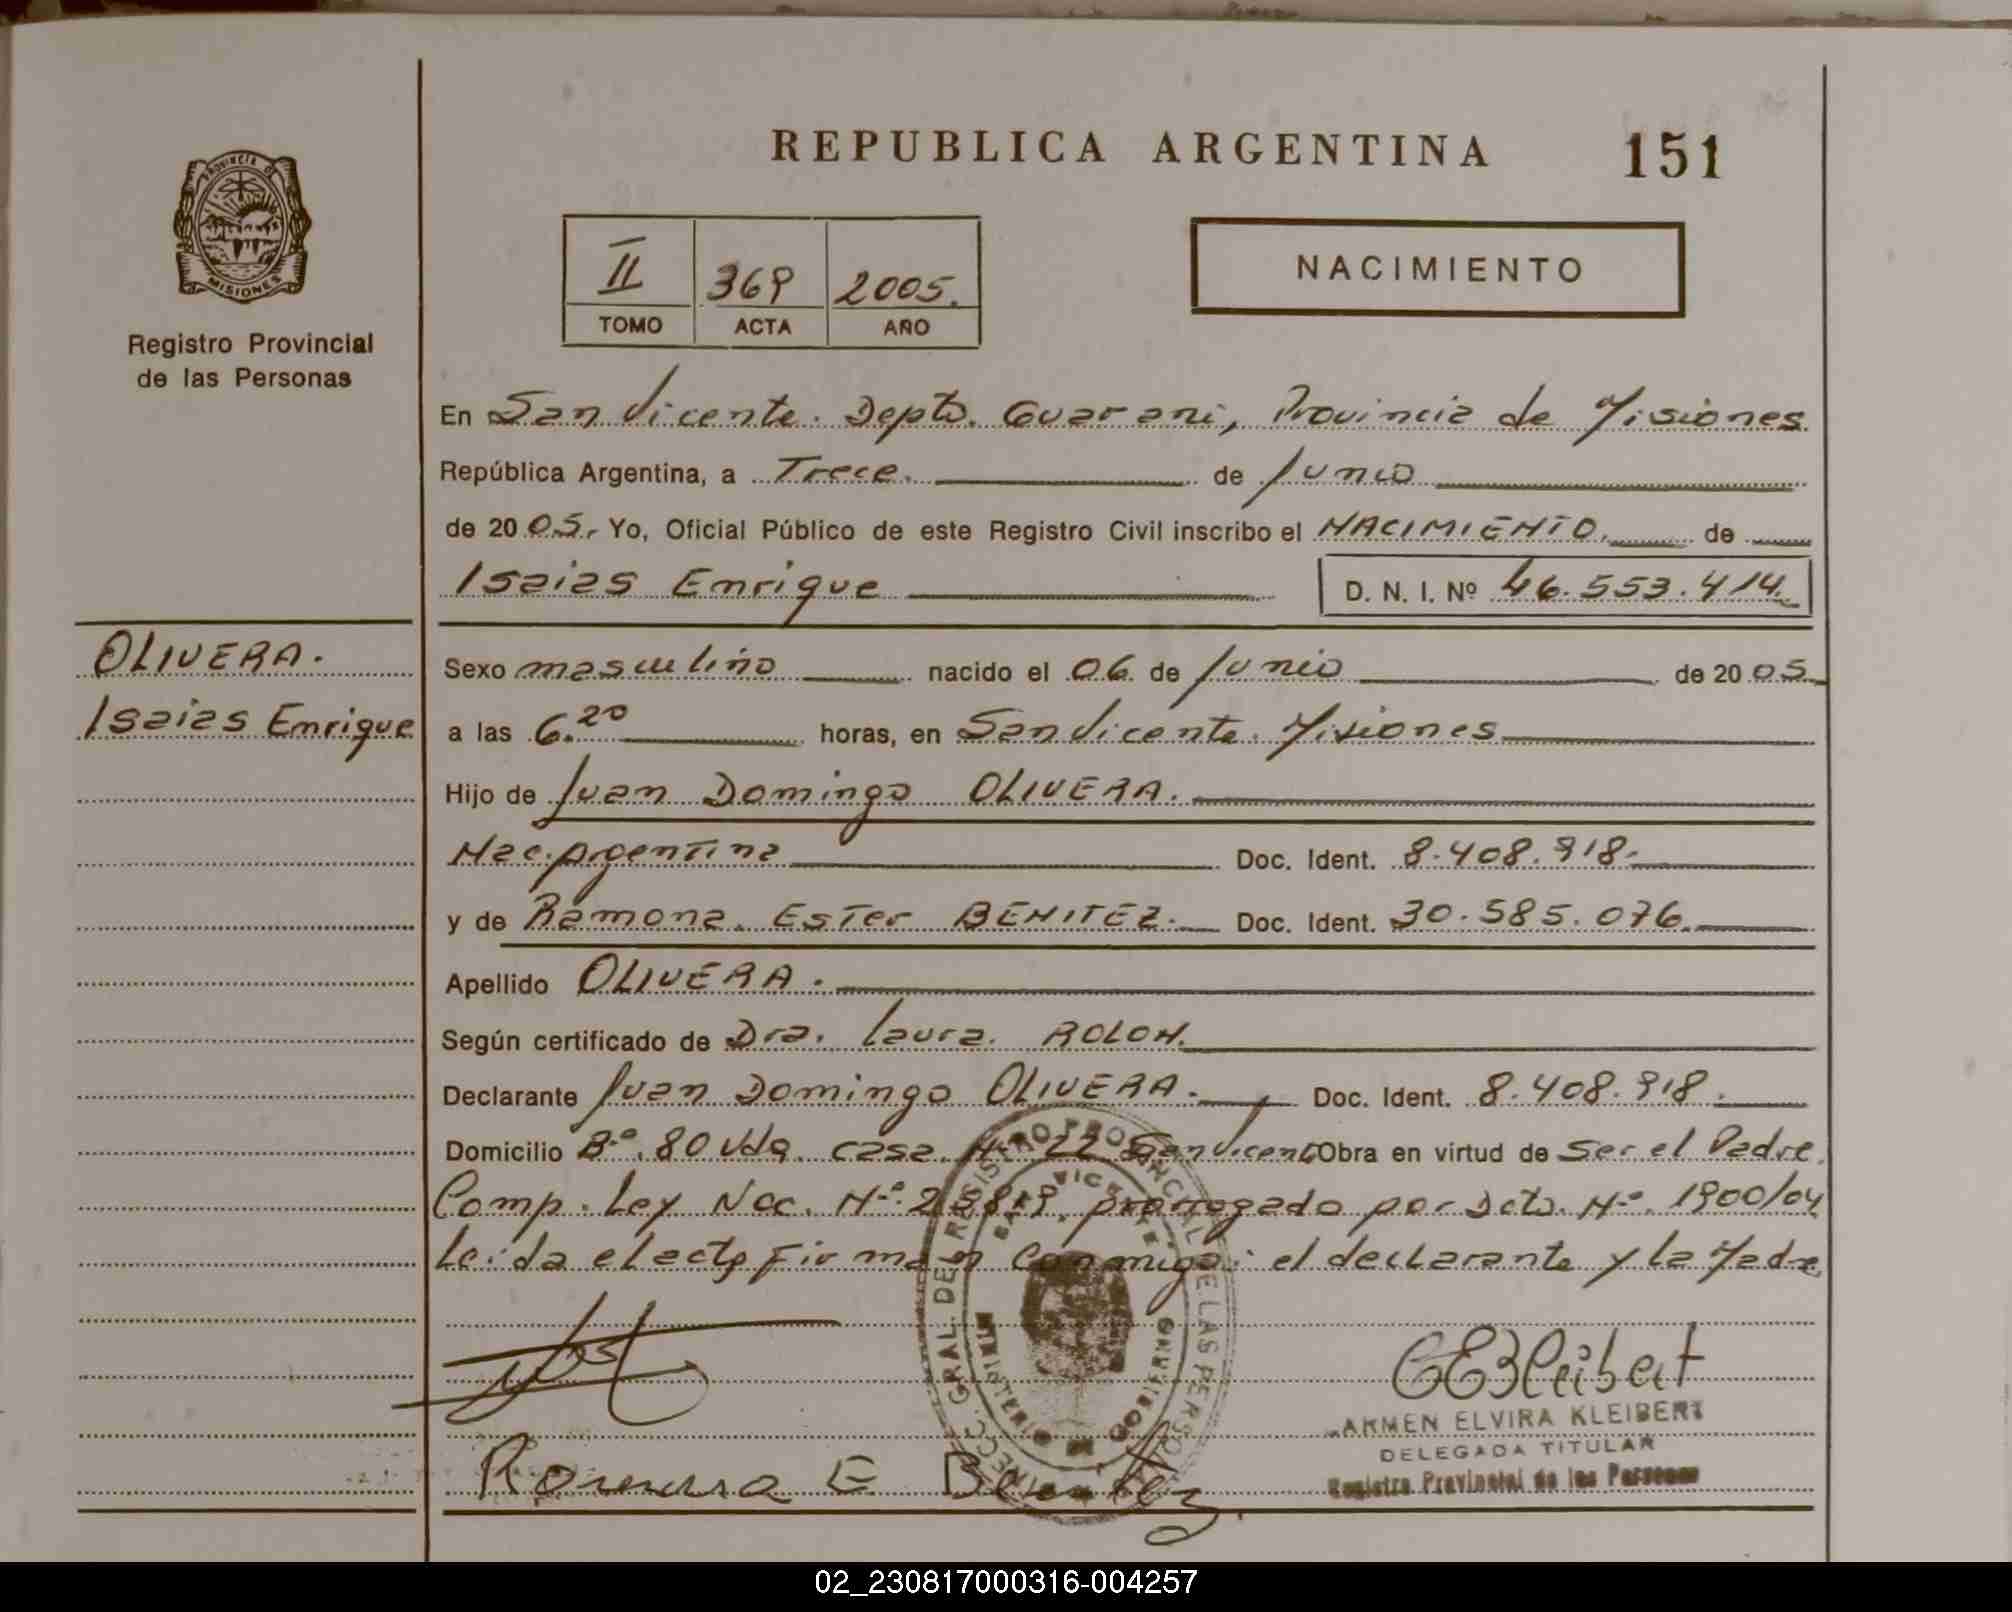 REPUBLICA ARGENTINA 151
PROVINCIA DE
MISIONES
Registro Provincial
de las Personas
II 369 2005.
TOMO ACTA AÑO
NACIMIENTO
En San Vicente. Depto. Guarani, Provincia de Misiones
República Argentina, a Trece. de Junio
de 2005. Yo, Oficial Público de este Registro Civil inscribo el NACIMIENTO. de
Isaias Enrique D. N. I. Nº 46.553.414
OLIVERA.
Isaias Enrique
Sexo masculino nacido el 06 de Junio de 2005
a las 6.20 horas, en San Vicente. Misiones
Hijo de Juan Domingo OLIVERA.
Nac. Argentina Doc. Ident. 8.408.918.
y de Ramona Ester BENITEZ. Doc. Ident. 30.585.076.
Apellido OLIVERA.
Según certificado de Dra. Laura ROLON.
Declarante Juan Domingo OLIVERA. Doc. Ident. 8.408.918.
Domicilio Bº. 80 Vdas. casa Nº 22 San Vicente Obra en virtud de Ser el Padre.
Comp. Ley Nac. Nº. 25819 prorrogado por Dcto. Nº. 1900/04
Leida el acta firman conmigo: el declarante y la Madre
Ramona E Benitez
CEKleibert
CARMEN ELVIRA KLEIBERT
DELEGADA TITULAR
Registro Provincial de las Personas
DIRECC. GRAL. DEL REGISTRO PROVINCIAL DE LAS PERSONAS
SAN VICENTE
MINISTERIO DE GOBIERNO
02_230817000316-004257